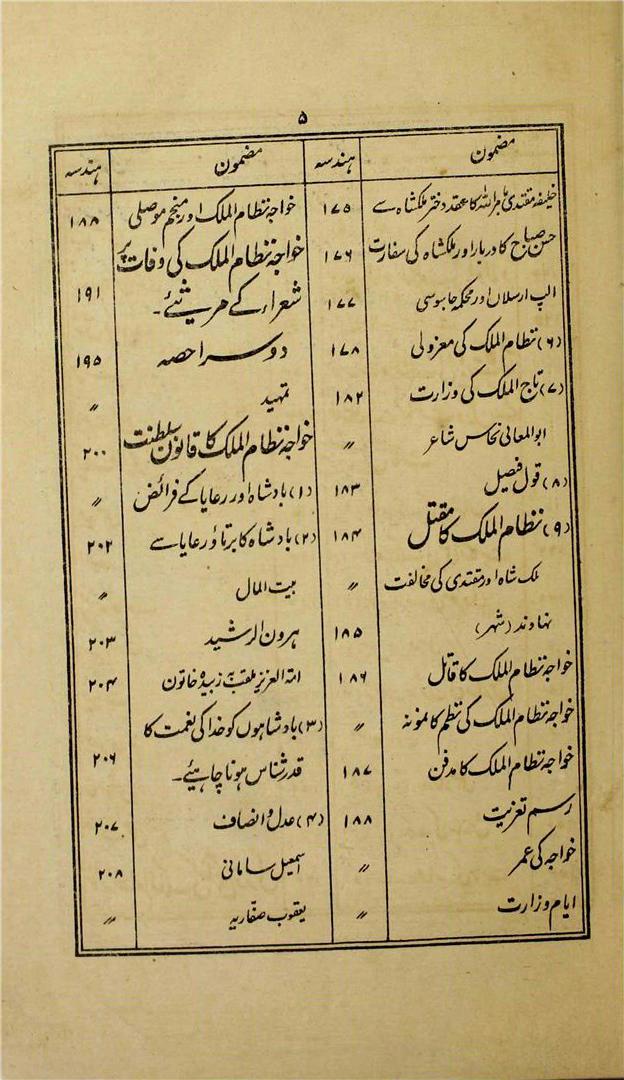 ۵
مضمون ہندسہ
خلیفہ مقتدی بامر اللہ کا عقد دختر ملکشاہ سے ۱۷۵
حسن صباح کا دربار اور ملکشاہ کی سفارت ۱۷۶
الپ ارسلان اور محکمہ جاسوسی ۱۷۷
(۶) نظام الملک کی معزولی ۱۷۸
(۷) تاج الملک کی وزارت ۱۸۲
ابو المعالی نحاس شاعر "
(۸) قول فیصل ۱۸۳
(۹) نظام الملک کا مقتل ۱۸۴
ملک شاہ اور مقتدی کی مخالفت "
نہاوند (شہر) ۱۸۵
خواجہ نظام الملک کا قاتل ۱۸۶
خواجہ نظام الملک کی نظم کا نمونہ "
خواجہ نظام الملک کا مدفن ۱۸۷
رسم تعزیت ۱۸۸
خواجہ کی عمر "
ایام وزارت "
مضمون ہندسہ
خواجہ نظام الملک اور منجم موصلی ۱۸۸
خواجہ نظام الملک کی وفات پر
شعراء کے مرثیئے۔ ۱۹۱
دوسرا حصہ ۱۹۵
تمہید "
خواجہ نظام الملک کا قانون سلطنت ۲۰۰
(۱) بادشاہ اور رعایا کے فرائض "
(۲) بادشاہ کا برتاؤ رعایا سے ۲۰۲
بیت المال "
ہرون الرشید ۲۰۳
امۃ العزیز ملقب بہ زبیدہ خاتون ۲۰۴
(۳) بادشاہوں کو خدا کی نعمت کا
قدر شناس ہونا چاہیئے۔ ۲۰۶
(۴) عدل و انصاف ۲۰۷
اسمعیل سامانی ۲۰۸
یعقوب صفاریہ "